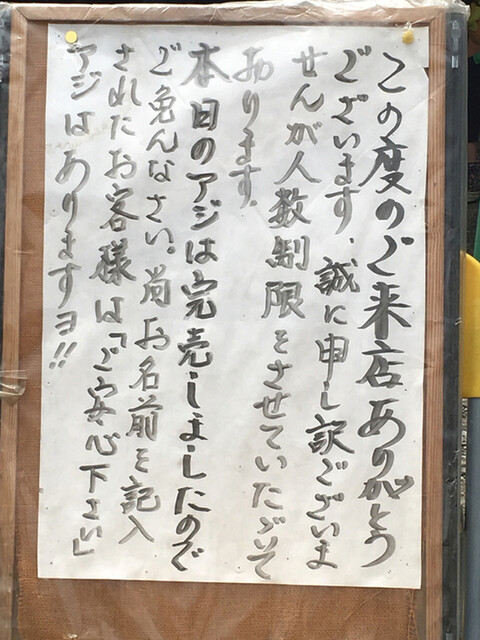 この度のご来店ありがとう
ございます、誠に申し訳ございま
せんが人数制限をさせていただいて
あります。
本日のアジは完売しましたので
ご免んなさい。尚お名前を記入
されたお客様は「ご安心下さい」
アジはありますヨ!!